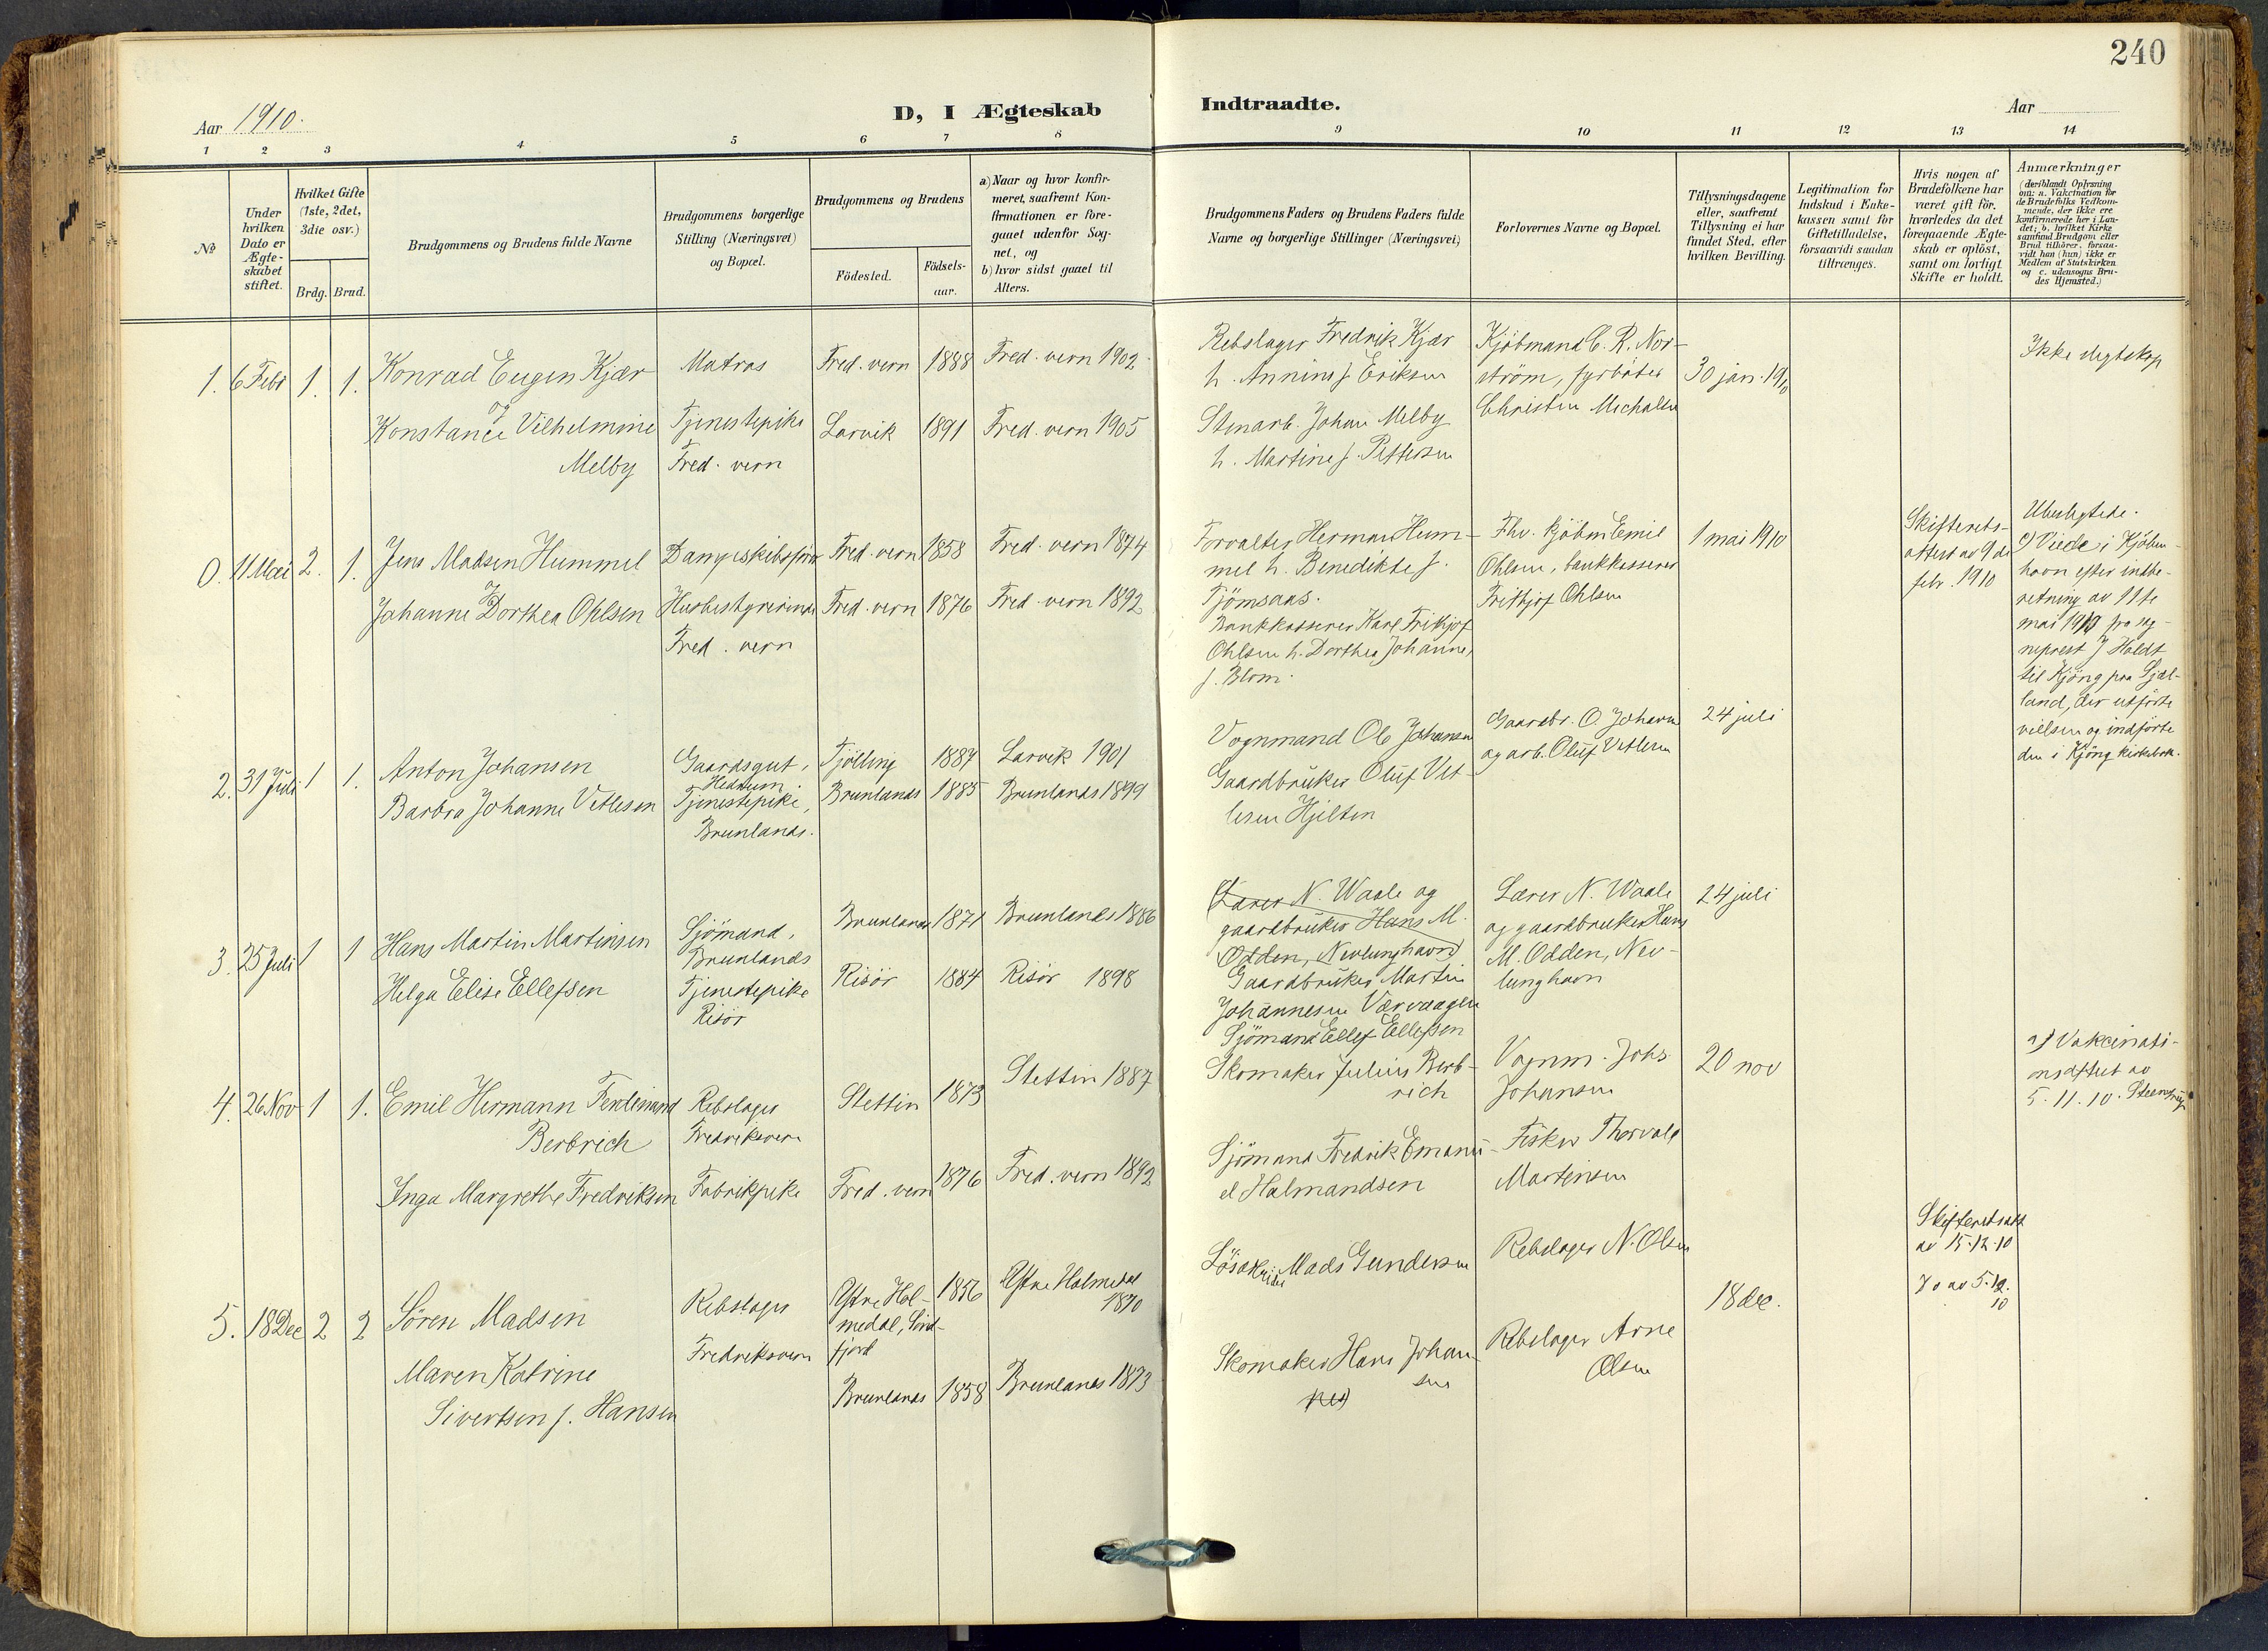 240
Aar 1910.
D, I Ægteskab
Indtraadte.
Aar
1 2 3 4 5 6 7 8 9 10 11 12 13 14
№
Under hvilken Dato er Ægteskabet stiftet.
Hvilket Gifte (1ste, 2det, 3die osv.)
Brdg. Brud.
Brudgommens og Brudens fulde Navne
Brudgommens borgerlige Stilling (Næringsvei) og Bopæl.
Brudgommens og Brudens
Födested.
Födsels-aar.
a) Naar og hvor konfir-
meret, saafremt Kon-
firmationen er fore-
gaaet udenfor Sog-
net, og
b) hvor sidst gaaet til
Alters.
Brudgommens Faders og Brudens Faders fulde
Navne og borgerlige Stillinger (Næringsvei)
Forlovernes Navne og Bopæl.
Tillysningsdagene
eller, saafremt
Tillysning ei har
fundet Sted, efter
hvilken Bevilling.
Legitimation for
Indskud i Enke-
kassen samt for
Giftetilladelse,
forsaavidt saadan
tiltrænges.
Hvis nogen af
Brudefolkene har
været gift för,
hvorledes da det
foregaaende Ægte-
skab er oplöst,
samt om lovligt
Skifte er holdt.
Anmærkninger
(deriblandt Oplysning
om: a. Vakcination for
de Brudefolks Vedkom-
mende, der ikke ere
konfirmerede her i Lan-
det; b. hvilket Kirke-
samfund Brudgom eller
Brud tilhörer, forsau-
vidt han (hun) ikke er
Medlem af Statskirken
og c. udensogns Bru-
des Hjemsted.)
1. 6 Febr 1. 1.
Konrad Eugen Kjær
og
Konstance Vilhelmine
Melby
Matros
Tjenestepike
Fred. vern
Fred. vern 1888 Fred. vern 1902
Larvik 1891 Fred. vern 1905
Rebslager Fredrik Kjær
h. Annine f. Eriksen
Stenarb. Johan Melby
h. Martine f. Pettersen
Kjöbmand C. R. Nor-
ström, fyrböter
Christen Michalsen
30 jan. 1910
Ikke slegtskap
0. 11 Mai 2. 1.
Jens Madsen Hummel
og
Johanne Dorthea Ohlsen
Dampskibsförer
Husbestyrerinde
Fred. vern
Fred. vern 1858 Fred. vern 1874
Fred. vern 1876 Fred. vern 1892
Forvalter Herman Hum-
mel h. Benedikte f.
Tjömsaas.
Bankkasserer Karl Frithjof
Ohlsen h. Dorthea Johanne,
f. Blom.
Fhv. kjöbm Emil
Ohlsen, bankkasserer
Frithjof Ohlsen
1 mai 1910
Skifterets-
attest av 9 de
febr. 1910
Ubeslegtede.
Viede i Kjöben-
havn efter indbe-
retning av 11te
mai 1910 fra sog-
neprest J Holdt
til Kjöng paa Sjæl-
land, der utförte
vielsen og indförte
den i Kjöng kirkebok.
2. 31 Juli 1 1.
Anton Johansen
Barbra Johanne Vetlesen
Gaardsgut,
Hedrum.
Tjenestepike,
Brunlanes.
Tjölling 1887 Larvik 1901
Brunlanes 1885 Brunlanes 1899
Vognmand Ole Johansen
Gaardbruker Oluf Vet-
lesen Hjelten
Gaardbr. O Johansen
og arb. Oluf Vetlesen
24 juli
3. 25 Juli 1 1
Hans Martin Martinsen
Helga Elise Ellefsen
Sjömand,
Brunlanes
Tjenestepike
Risör
Brunlanes 1871 Brunlanes 1886
Risör 1884 Risör 1898
Lærer N. Waale og
gaardbruker Hans M.
Odden, Nevlunghavn
Gaardbruker Martin
Johannesen Værvaagen
Sjömand Ellef Ellefsen
Lærer N. Waale
og gaardbruker Hans
M. Odden, Nev-
lunghavn
24 juli
4. 26 Nov 1 1.
Emil Hermann Ferdinand
Berbrich
Inga Margrethe Fredriksen
Rebslager
Fredriksvern
Fabrikpike
Stettin 1873 Stettin 1887
Fred. vern 1876 Fred. vern 1892
Skomaker Julius Berb-
rich
Sjömand Fredrik Emanu-
el Halmandsen
Vognm. Johs
Johansen
Fisker Thorvald
Martinsen
20 nov
a) Vakcinati-
onsattest av
5.11.10.
5. 18 Dec 2 2
Sören Madsen
Maren Katrine
Sivertsen f. Hansen
Rebslager
Fredriksvern
Ytre Hol-
medal, Sönd-
fjord
1856
Ytre Holmedal
1870
Brunlanes 1858 Brunlanes 1873
Mads Gundersen
Skomaker Hans Johan-
sen
Rebslager N. Olsen
Rebslager Arne
Olsen
18 dec.
Skifteretsatt
av 15.12.10
Do av 5.12.
10